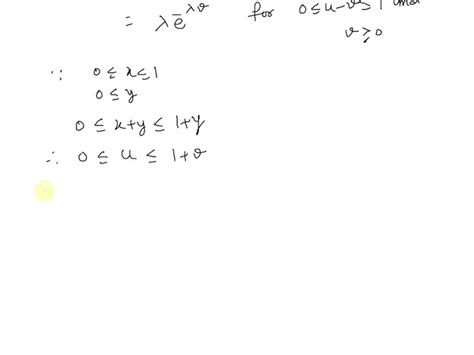 = λ e^{-λv} for 0 ≤ u-v ≤ 1 and
v ≥ 0
∵ 0 ≤ x ≤ 1
0 ≤ y
0 ≤ x+y ≤ 1+y
∴ 0 ≤ u ≤ 1+v